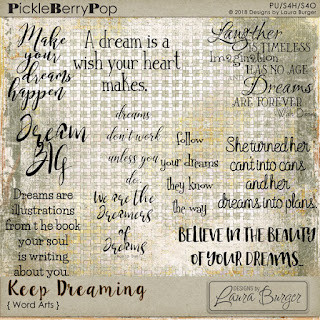 PickleBerryPop
PU/S4H/S4O
© 2018 Designs by Laura Burger
Make
your
dreams
happen
A dream is a
wish your heart
makes.
Laughter
IS TIMELESS
Imagination
HAS NO AGE
Dreams
ARE FOREVER
Walt Disney
Dream
Big
dreams
don't work
unless you
do
follow
your dreams
they know
the way
She turned her
cant into cans
and her
dreams into plans.
Dreams are
illustrations
from the book
your soul
is writing
about you.
we are the
Dreamers
of
Dreams
BELIEVE IN THE BEAUTY
OF YOUR DREAMS.
Keep Dreaming
{ Word Arts }
DESIGNS by
Laura Burger